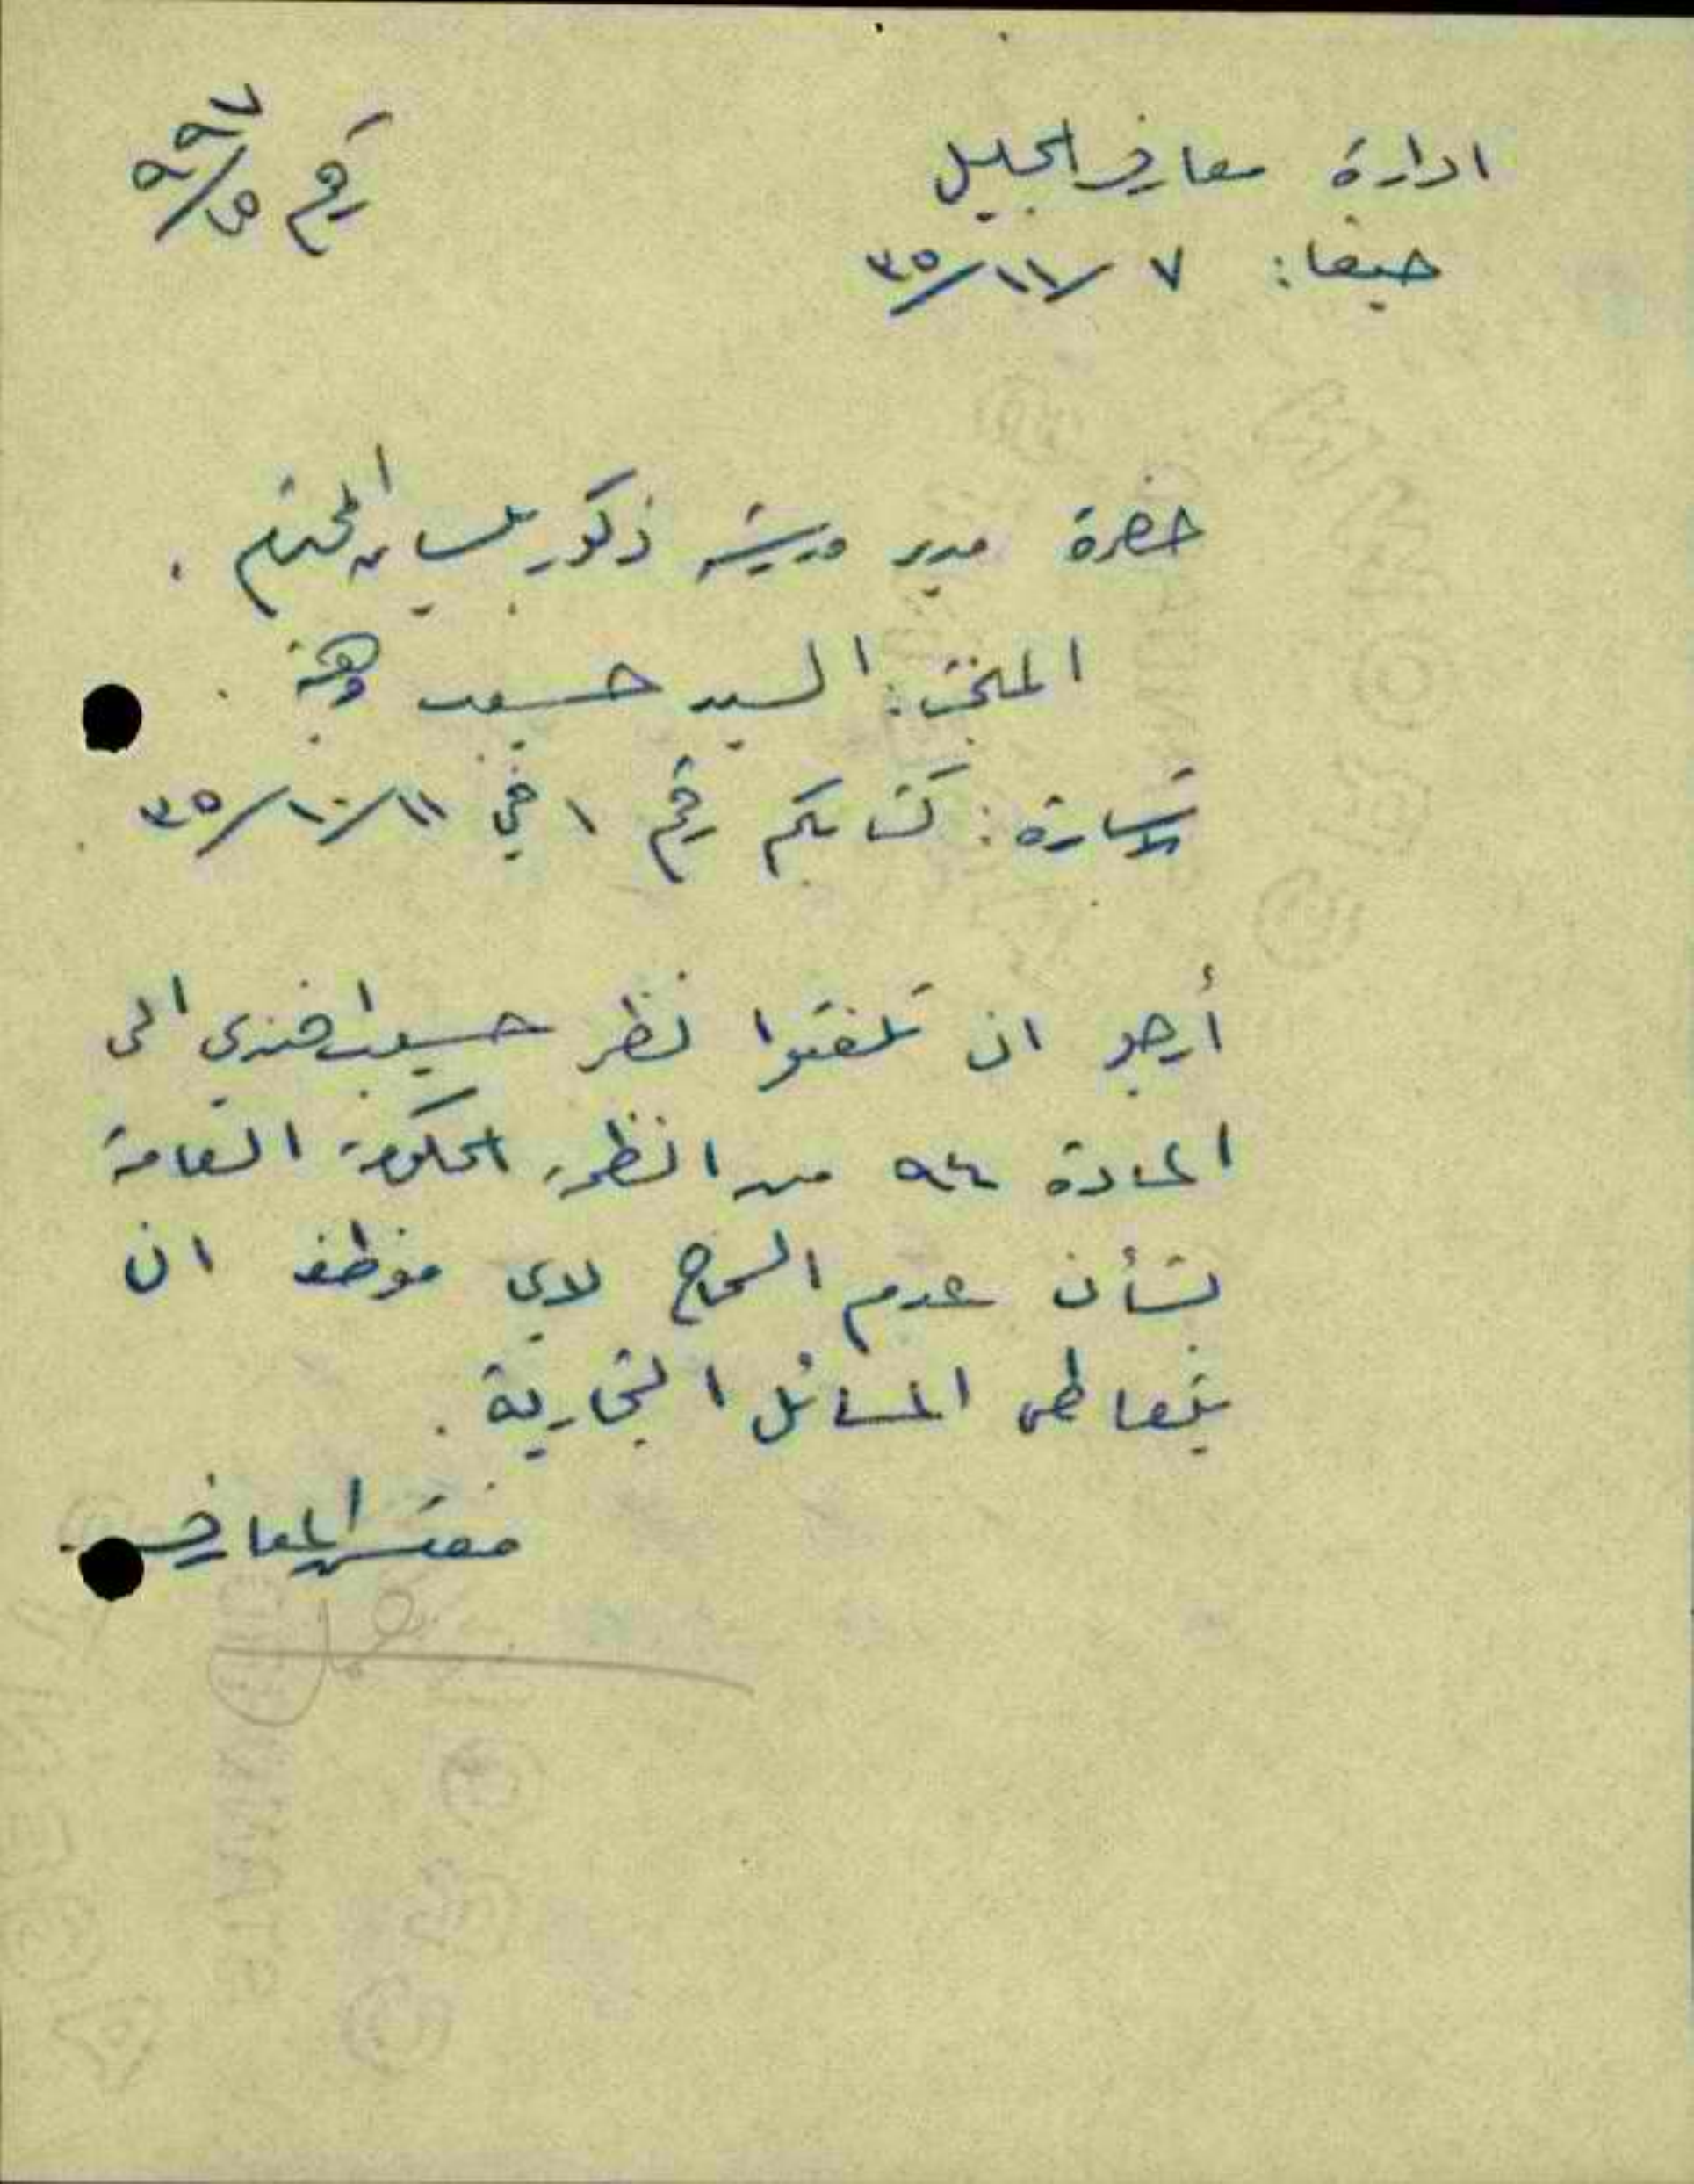 ادارة معارف الجليل
حيفا: ٧ /١١/ ٣٥
رقم
حضرة مدير مدرسة ذكور بيسان المحترم .
الملخص: السيد حسيب وهبة .
الاشارة: كتابكم رقم ١ في ١١/١٠/٣٥ .
أرجو ان تلفتوا نظر حسيب افندي الى
المادة ٩٤ من انظمة الحكومة العامة
بشأن عدم السماح لاي موظف ان
يتعاطى المسائل التجارية .
مفتش المعارف